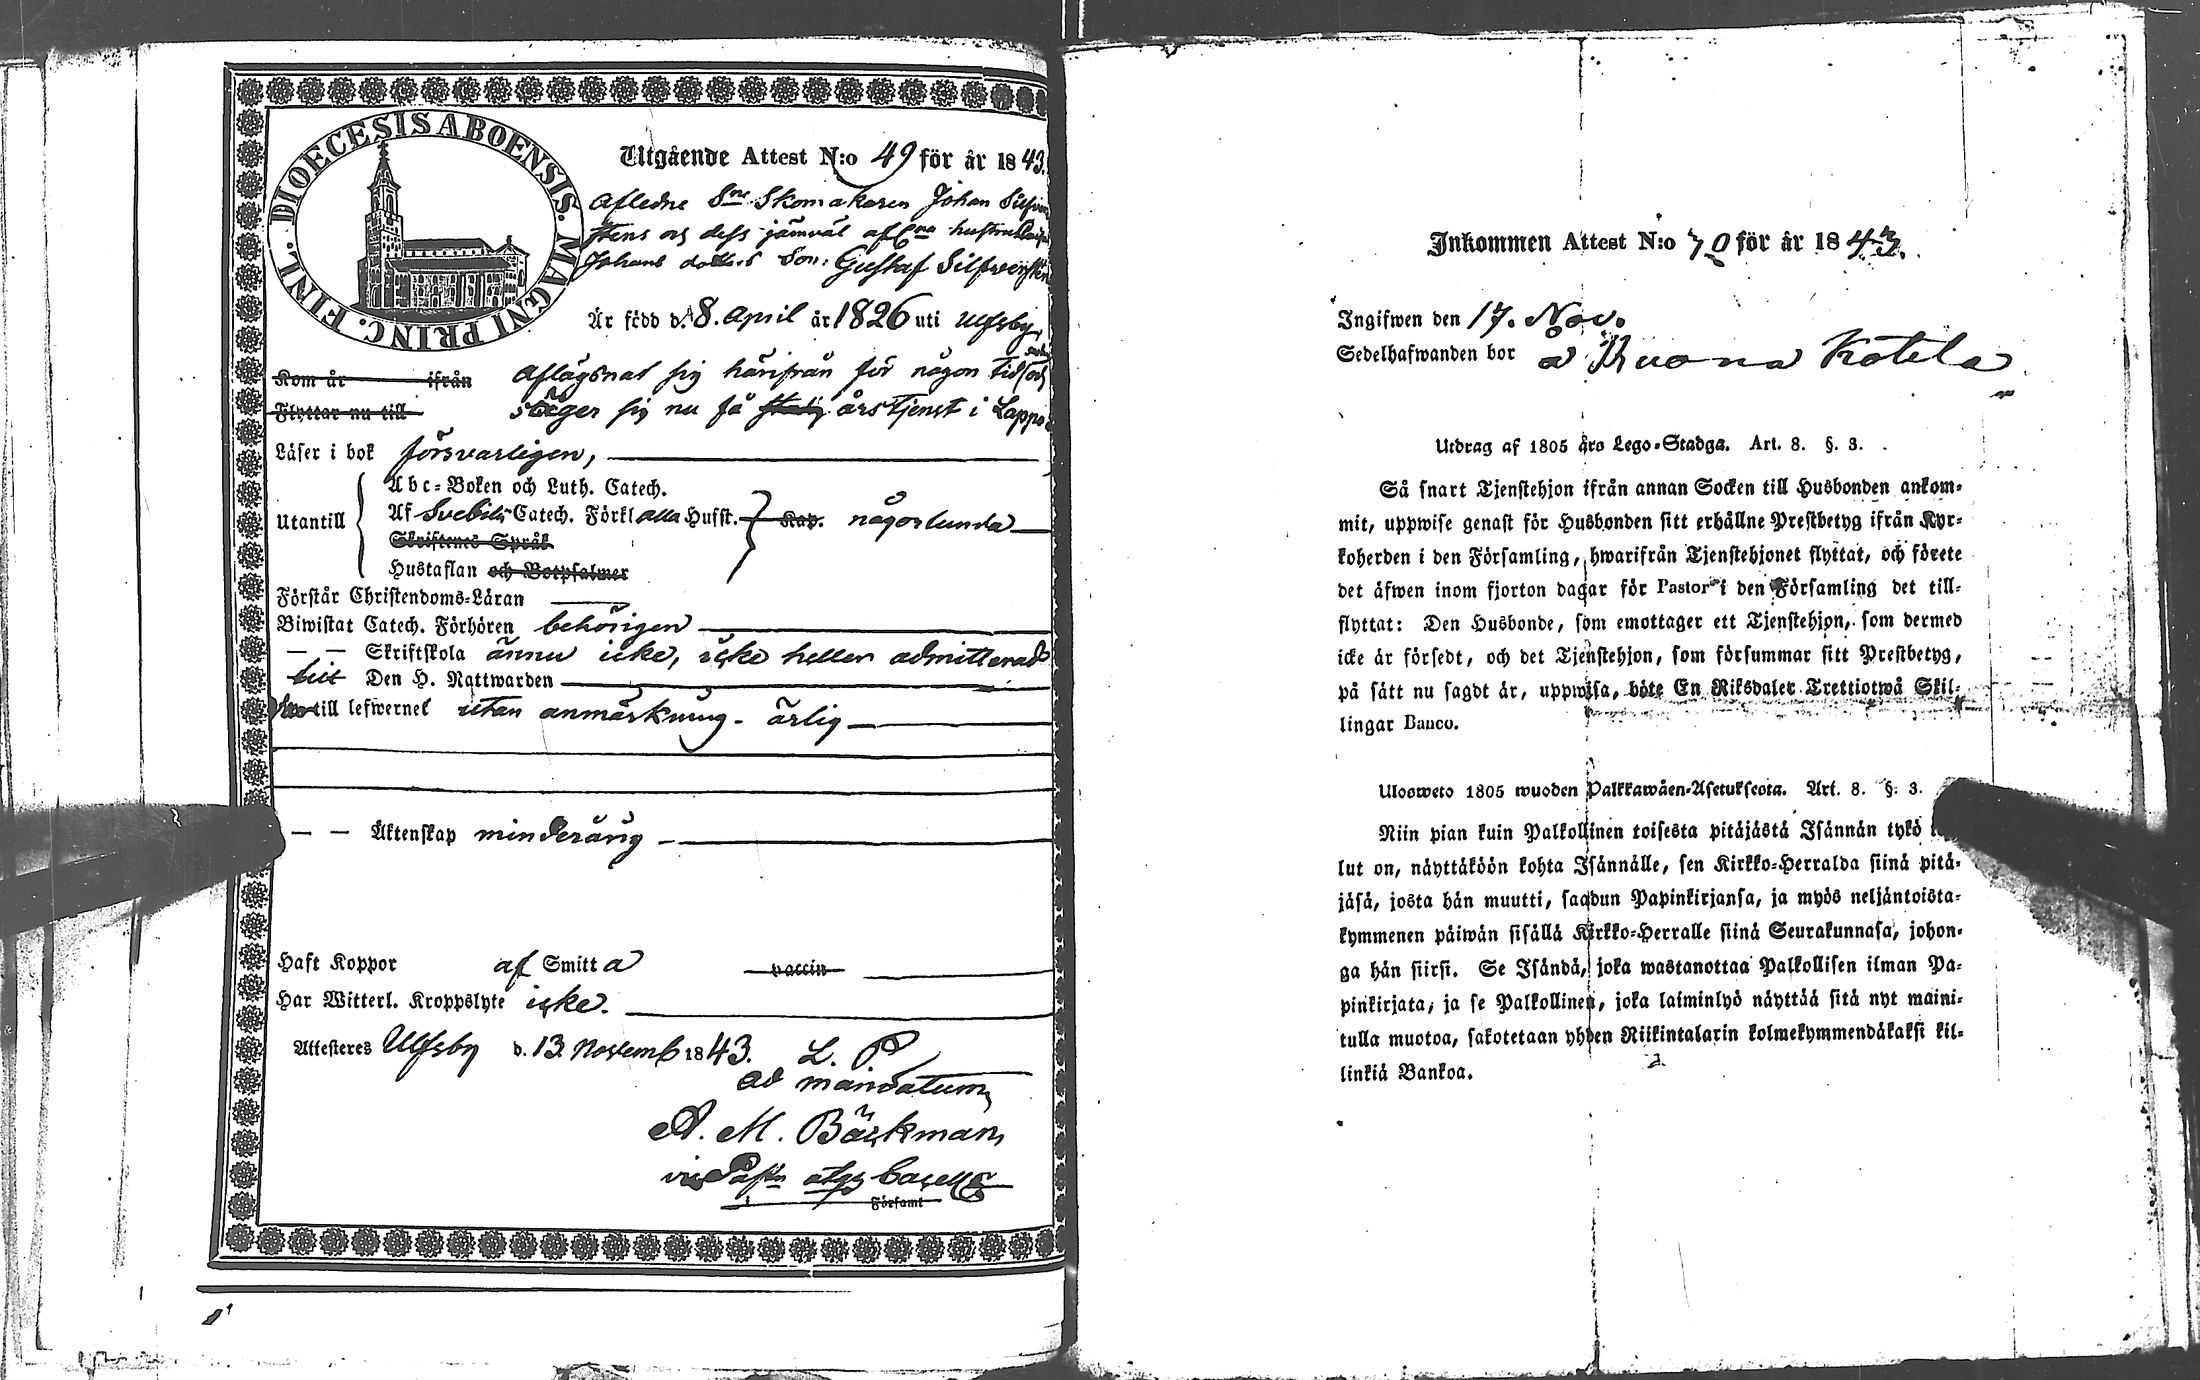 DIOECESIS ABOENSIS. MAGNI PRINC. FINL.
Utgående Attest N:o 49 för år 1843.
Afledne Sne Skomakaren Johan Silfven
stens och dess jämväl afledna hustru
Johans dotters Son: Gustaf Silfversten
Är född d. 8. April år 1826 uti Ulfsby,
Kom år ifrån aflägsnat sig härifrån för någon tid, och
Flyttar nu till säger sig nu få årstjenst i Lappo
Läser i bok försvarligen,
Utantill
Abc-Boken och Luth. Catech.
Af Svebilii Catech. Förkl alla Hufst. Kap. någorlunda
Skriftenes Språk
Hustaflan och Botpsalmer
Förstår Christendoms-Läran
Biwistat Catech. Förhören behörigen
— — Skriftskola ännu icke, icke heller admitterad
till Den H. Nattwarden
till lefwernet utan anmärkning - ärlig
— — Äktenskap minderårig
Haft Koppor af Smitta vaccin
Har Witterl. Kroppslyte icke.
Attesteres Ulfsby d. 13. Novemb 1843. L. P.
ad mandatum,
A. M. Bäckman,
i Församl
Inkommen Attest N:o 70 för år 1843.
Ingifwen den 17. Nov.
Sedelhafwanden bor å Ruona Kotila
Utdrag af 1805 års Lego-Stadga. Art. 8. §. 3.
Så snart Tjenstehjon ifrån annan Socken till Husbonden ankom-
mit, uppwise genast för Husbonden sitt erhållne Prestbetyg ifrån Kyr-
koherden i den Församling, hwarifrån Tjenstehjonet flyttat, och förete
det äfwen inom fjorton dagar för Pastor i den Församling det till-
flyttat: Den Husbonde, som emottager ett Tjenstehjon, som dermed
icke är försedt, och det Tjenstehjon, som försummar sitt Prestbetyg,
på sätt nu sagdt är, uppwisa, böte En Riksdaler Trettiotwå Skil-
lingar Banco.
Ulosweto 1805 wuoden Palkkawäen-Asetuksesta. Art. 8. §. 3.
Niin pian kuin Palkollinen toisesta pitäjästä Isännän tykö
lut on, näyttäköön kohta Isännälle, sen Kirkko-Herralda siinä pitä-
jäsä, josta hän muutti, saadun Papinkirjansa, ja myös neljäntoista-
kymmenen päiwän sisällä Kirkko-Herralle siinä Seurakunnasa, johon-
ga hän siirsi. Se Isändä, joka wastanottaa Palkollisen ilman Pa-
pinkirjata, ja se Palkollinen, joka laiminlyö näyttää sitä nyt maini-
tulla muotoa, sakotetaan yhden Riikintalarin kolmekymmendäkaksi kil-
linkiä Bankoa.